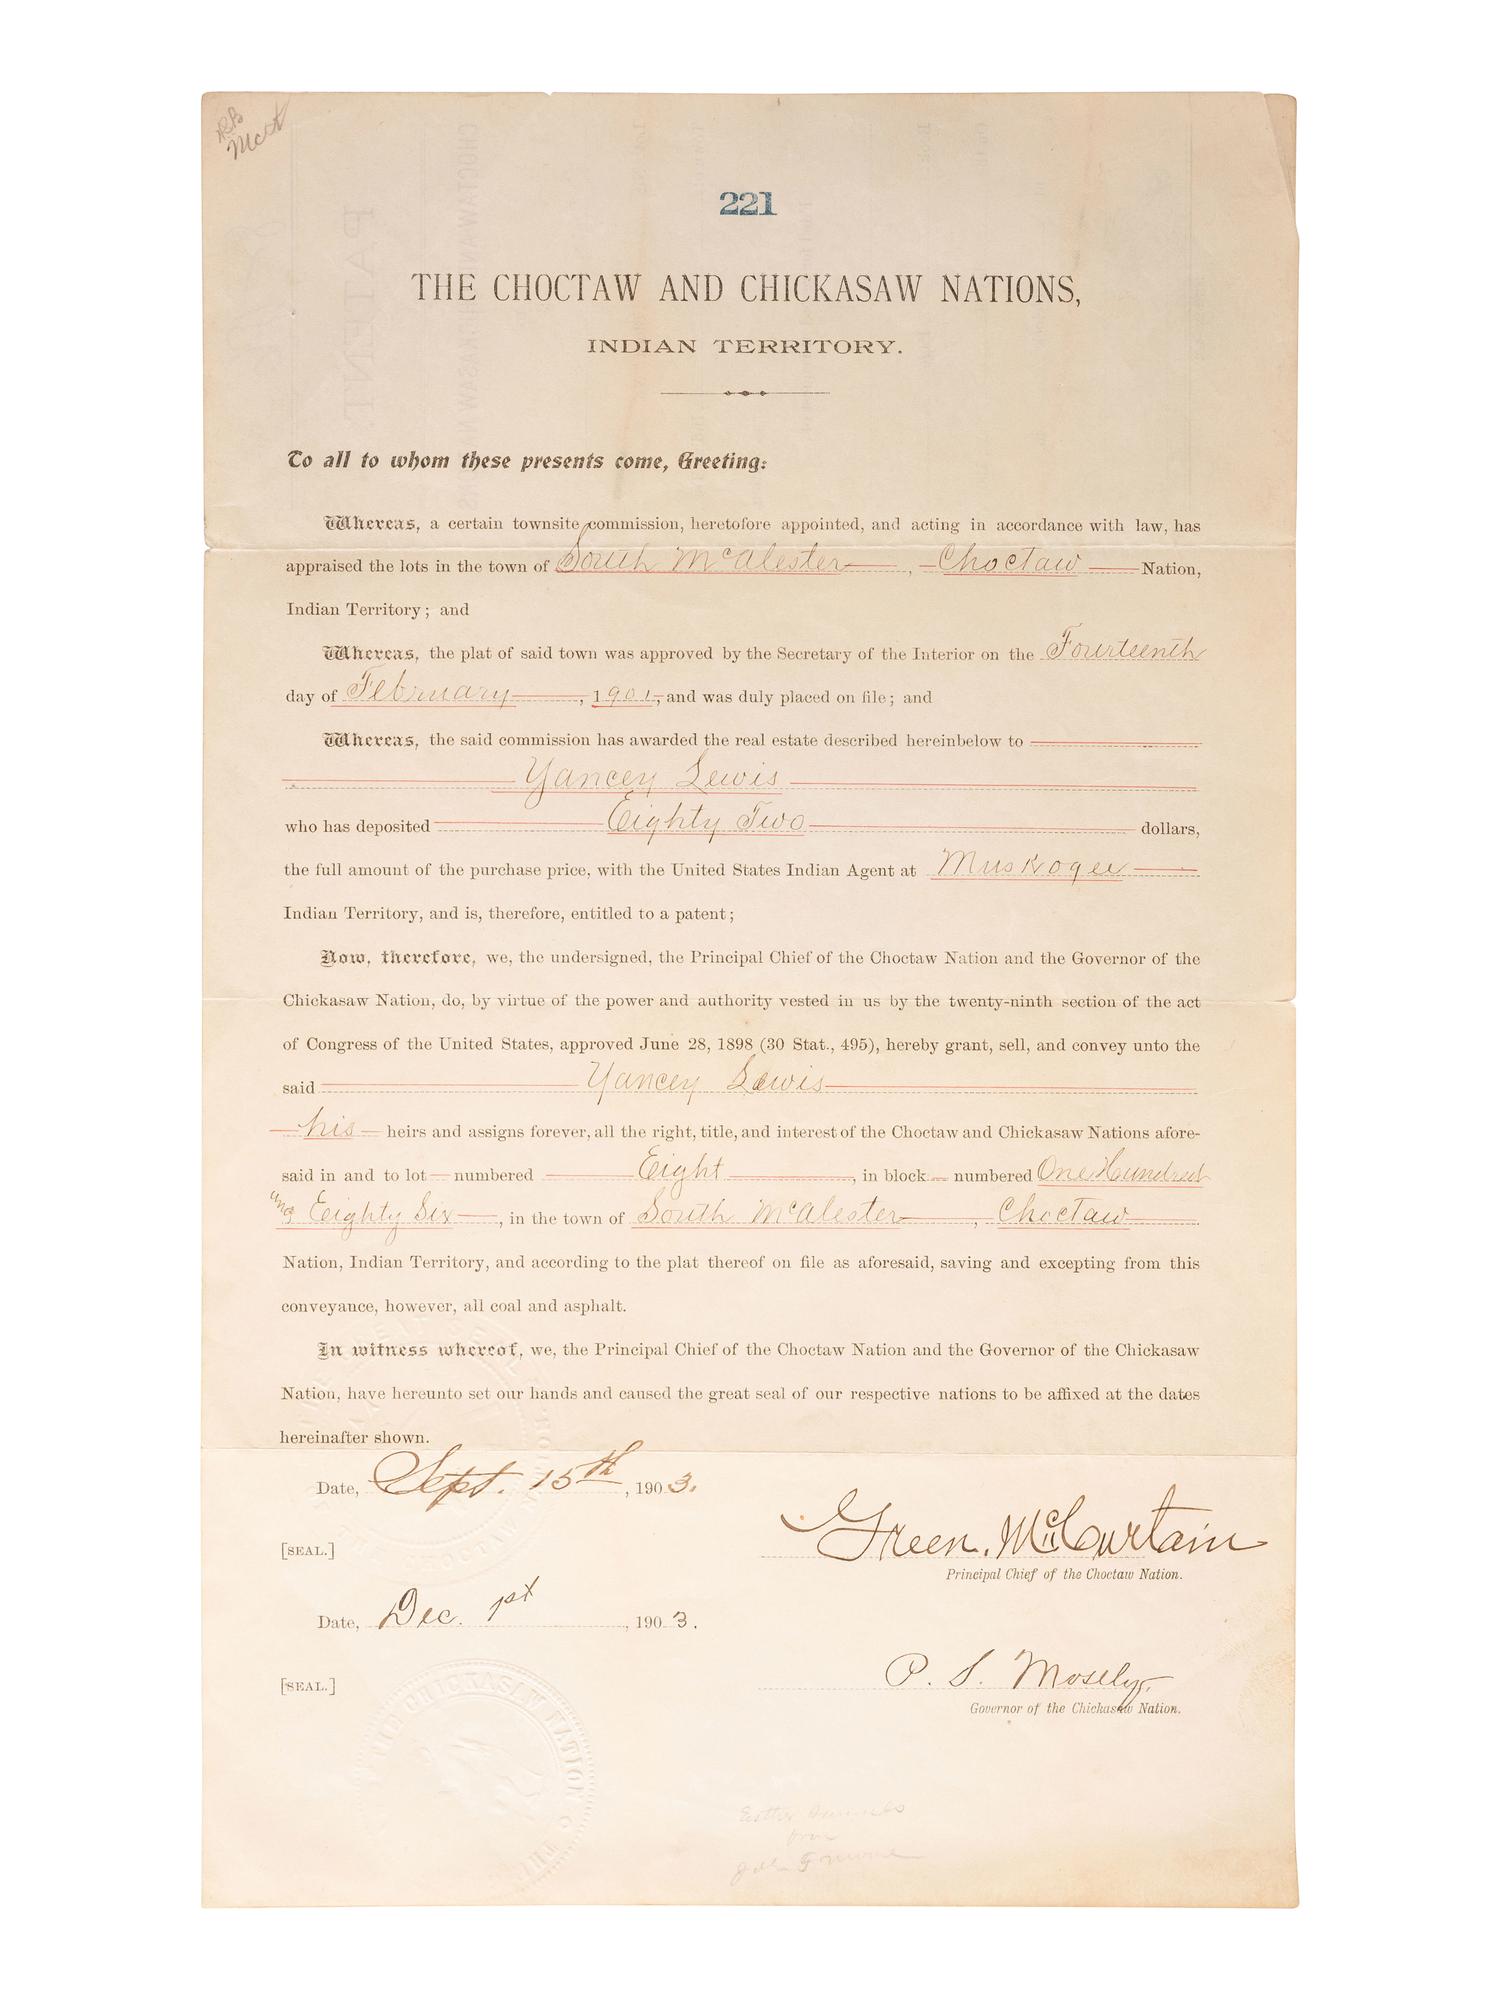 221
THE CHOCTAW AND CHICKASAW NATIONS,
INDIAN TERRITORY.
To all to whom these presents come, Greeting:
Whereas, a certain townsite commission, heretofore appointed, and acting in accordance with law, has
appraised the lots in the town of South McAlester, Choctaw Nation,
Indian Territory; and
Whereas, the plat of said town was approved by the Secretary of the Interior on the Fourteenth
day of February, 1901, and was duly placed on file; and
Whereas, the said commission has awarded the real estate described hereinbelow to
Yancey Lewis
who has deposited Eighty Two dollars,
the full amount of the purchase price, with the United States Indian Agent at Muskogee
Indian Territory, and is, therefore, entitled to a patent;
Now, therefore, we, the undersigned, the Principal Chief of the Choctaw Nation and the Governor of the
Chickasaw Nation, do, by virtue of the power and authority vested in us by the twenty-ninth section of the act
of Congress of the United States, approved June 28, 1898 (30 Stat., 495), hereby grant, sell, and convey unto the
said Yancey Lewis
his heirs and assigns forever, all the right, title, and interest of the Choctaw and Chickasaw Nations afore-
said in and to lot numbered Eight, in block numbered One Hundred
and Eighty Six, in the town of South McAlester, Choctaw
Nation, Indian Territory, and according to the plat thereof on file as aforesaid, saving and excepting from this
conveyance, however, all coal and asphalt.
In witness whereof, we, the Principal Chief of the Choctaw Nation and the Governor of the Chickasaw
Nation, have hereunto set our hands and caused the great seal of our respective nations to be affixed at the dates
hereinafter shown.
Date, Sept. 15th, 1903.
[SEAL.] Green McCurtain
Principal Chief of the Choctaw Nation.
Date, Dec. 1st, 1903.
[SEAL.] P. S. Mosely,
Governor of the Chickasaw Nation.
THE CHICKASAW NATION